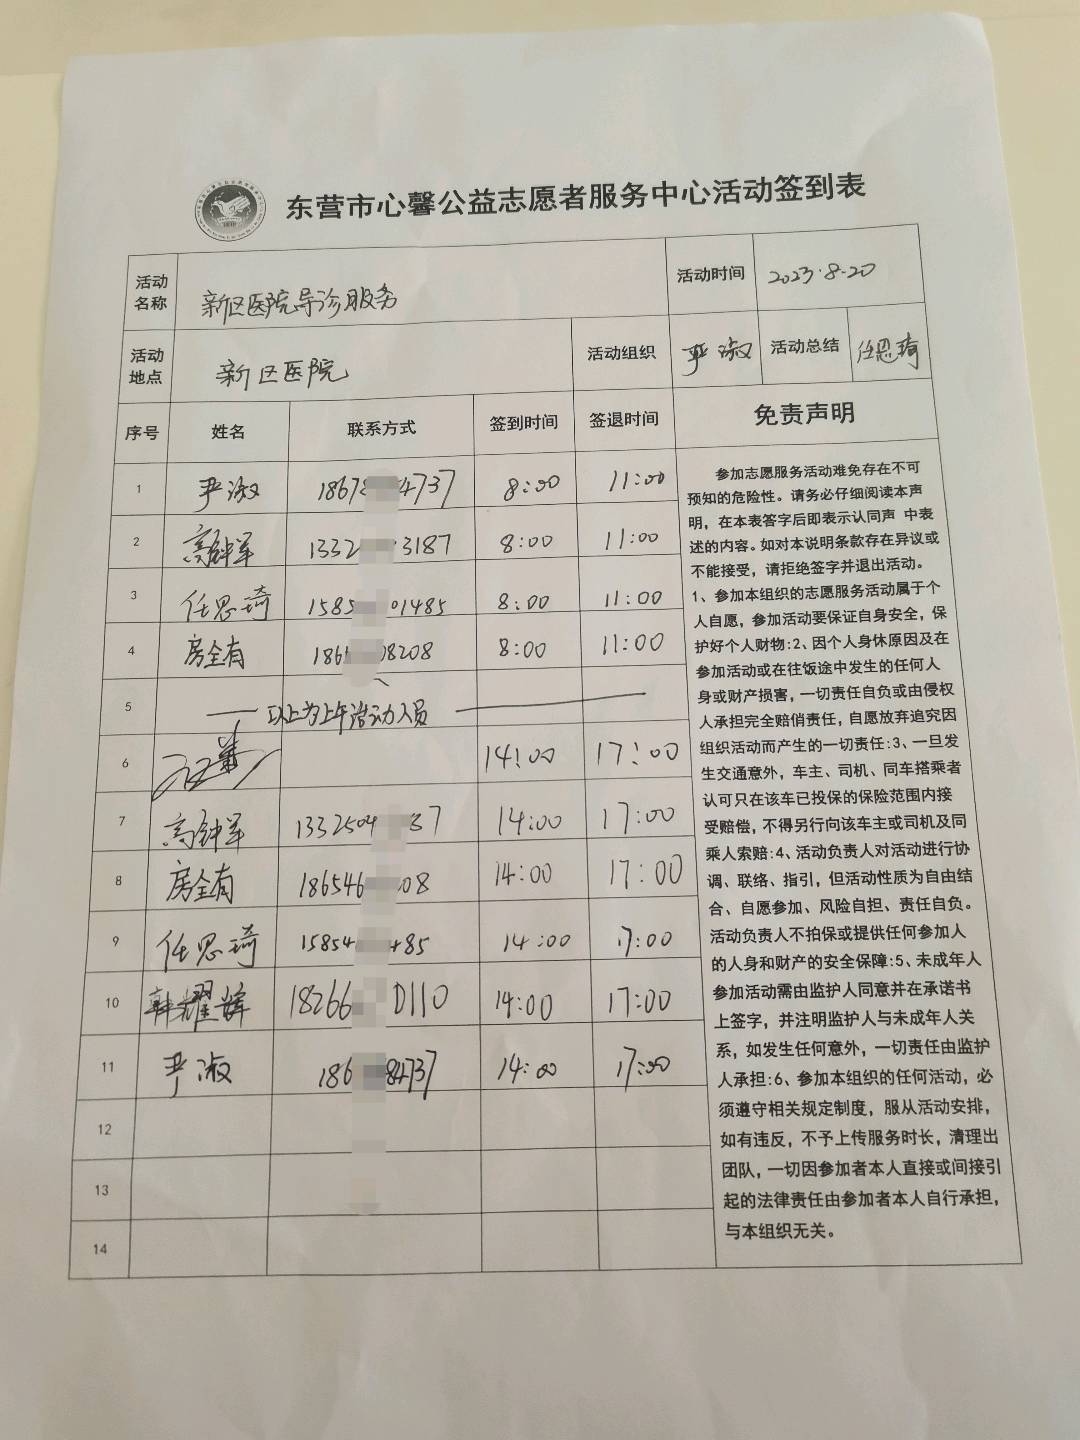 东营市心馨公益志愿者服务中心活动签到表
活动名称 新区医院导诊服务 活动时间 2023.8.20
活动地点 新区医院 活动组织 尹淑 活动总结 任思琦
序号 姓名 联系方式 签到时间 签退时间 免责声明
1 尹淑 1867 4737 8:00 11:00
2 高钟军 1332 3187 8:00 11:00
3 任思琦 1585 01485 8:00 11:00
4 房全有 186 08208 8:00 11:00
5 以上为上午活动人员
6 14:00 17:00
7 高钟军 1332504 37 14:00 17:00
8 房全有 186546 08 14:00 17:00
9 任思琦 15854 485 14:00 17:00
10 韩耀辉 18266 0110 14:00 17:00
11 尹淑 186 84737 14:00 17:00
12
13
14
参加志愿服务活动难免存在不可
预知的危险性。请务必仔细阅读本声
明，在本表答字后即表示认同声 中表
述的内容。如对本说明条款存在异议或
不能接受，请拒绝签字并退出活动。
1、参加本组织的志愿服务活动属于个
人自愿，参加活动要保证自身安全，保
护好个人财物:2、因个人身休原因及在
参加活动或在往饭途中发生的任何人
身或财产损害，一切责任自负或由侵权
人承担完全赔俏责任，自愿放弃追究因
组织活动而产生的一切责任:3、一旦发
生交通意外，车主、司机、同车搭乘者
认可只在该车已投保的保险范围内接
受赔偿，不得另行向该车主或司机及同
乘人索赔:4、活动负责人对活动进行协
调、联络、指引，但活动性质为自由结
合、自愿参加、风险自担、责任自负。
活动负责人不拍保或提供任何参加人
的人身和财产的安全保障:5、未成年人
参加活动需由监护人同意并在承诺书
上签字，并注明监护人与未成年人关
系，如发生任何意外，一切责任由监护
人承担:6、参加本组织的任何活动，必
须遵守相关规定制度，服从活动安排，
如有违反，不予上传服务时长，清理出
团队，一切因参加者本人直接或间接引
起的法律责任由参加者本人自行承担，
与本组织无关。